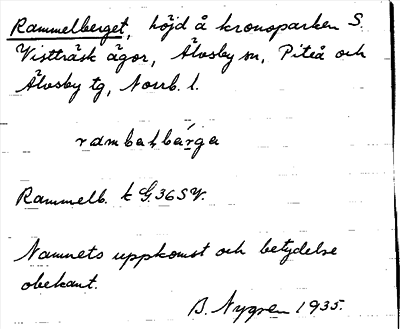 Rammelberget, höjd å kronoparken S.
Vistträsk ägor, Älvsby sn, Piteå och
Älvsby tg, Norrb. l.
Rammelb. k G. 36 SV.
Namnets uppkomst och betydelse
obekant.
B. Nygren 1935.